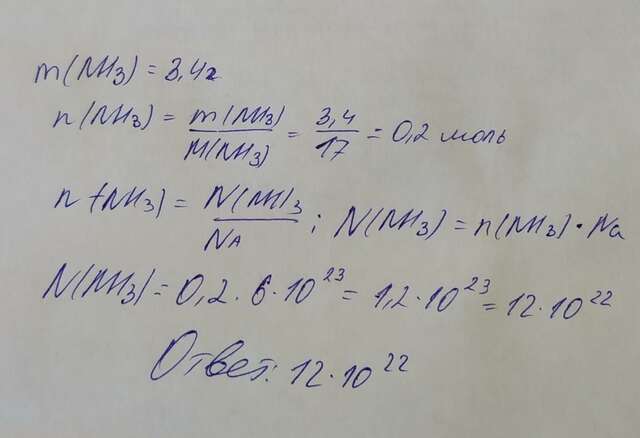 m(NH3) = 3,4г
n(NH3) = m(NH3)/M(NH3) = 3,4/17 = 0,2 моль
n(NH3) = N(NH)3/NA ; N(NH3) = n(NH3) · Na
N(NH3) = 0,2 · 6 · 10^23 = 1,2 · 10^23 = 12 · 10^22
Ответ: 12 · 10^22